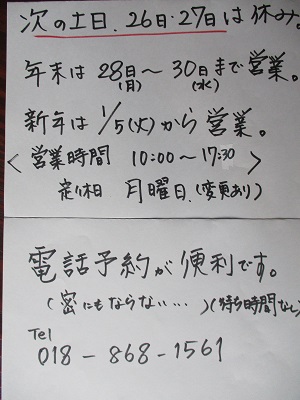 次の土日、26日・27日は休み。
年末は28日〜30日まで営業。
(月) (水)
新年は1/5(火)から営業。
<営業時間 10:00〜17:30>
定休日 月曜日(変更あり)
電話予約が便利です。
(密にもならない…)(待ち時間なし)
Tel
018-868-1561